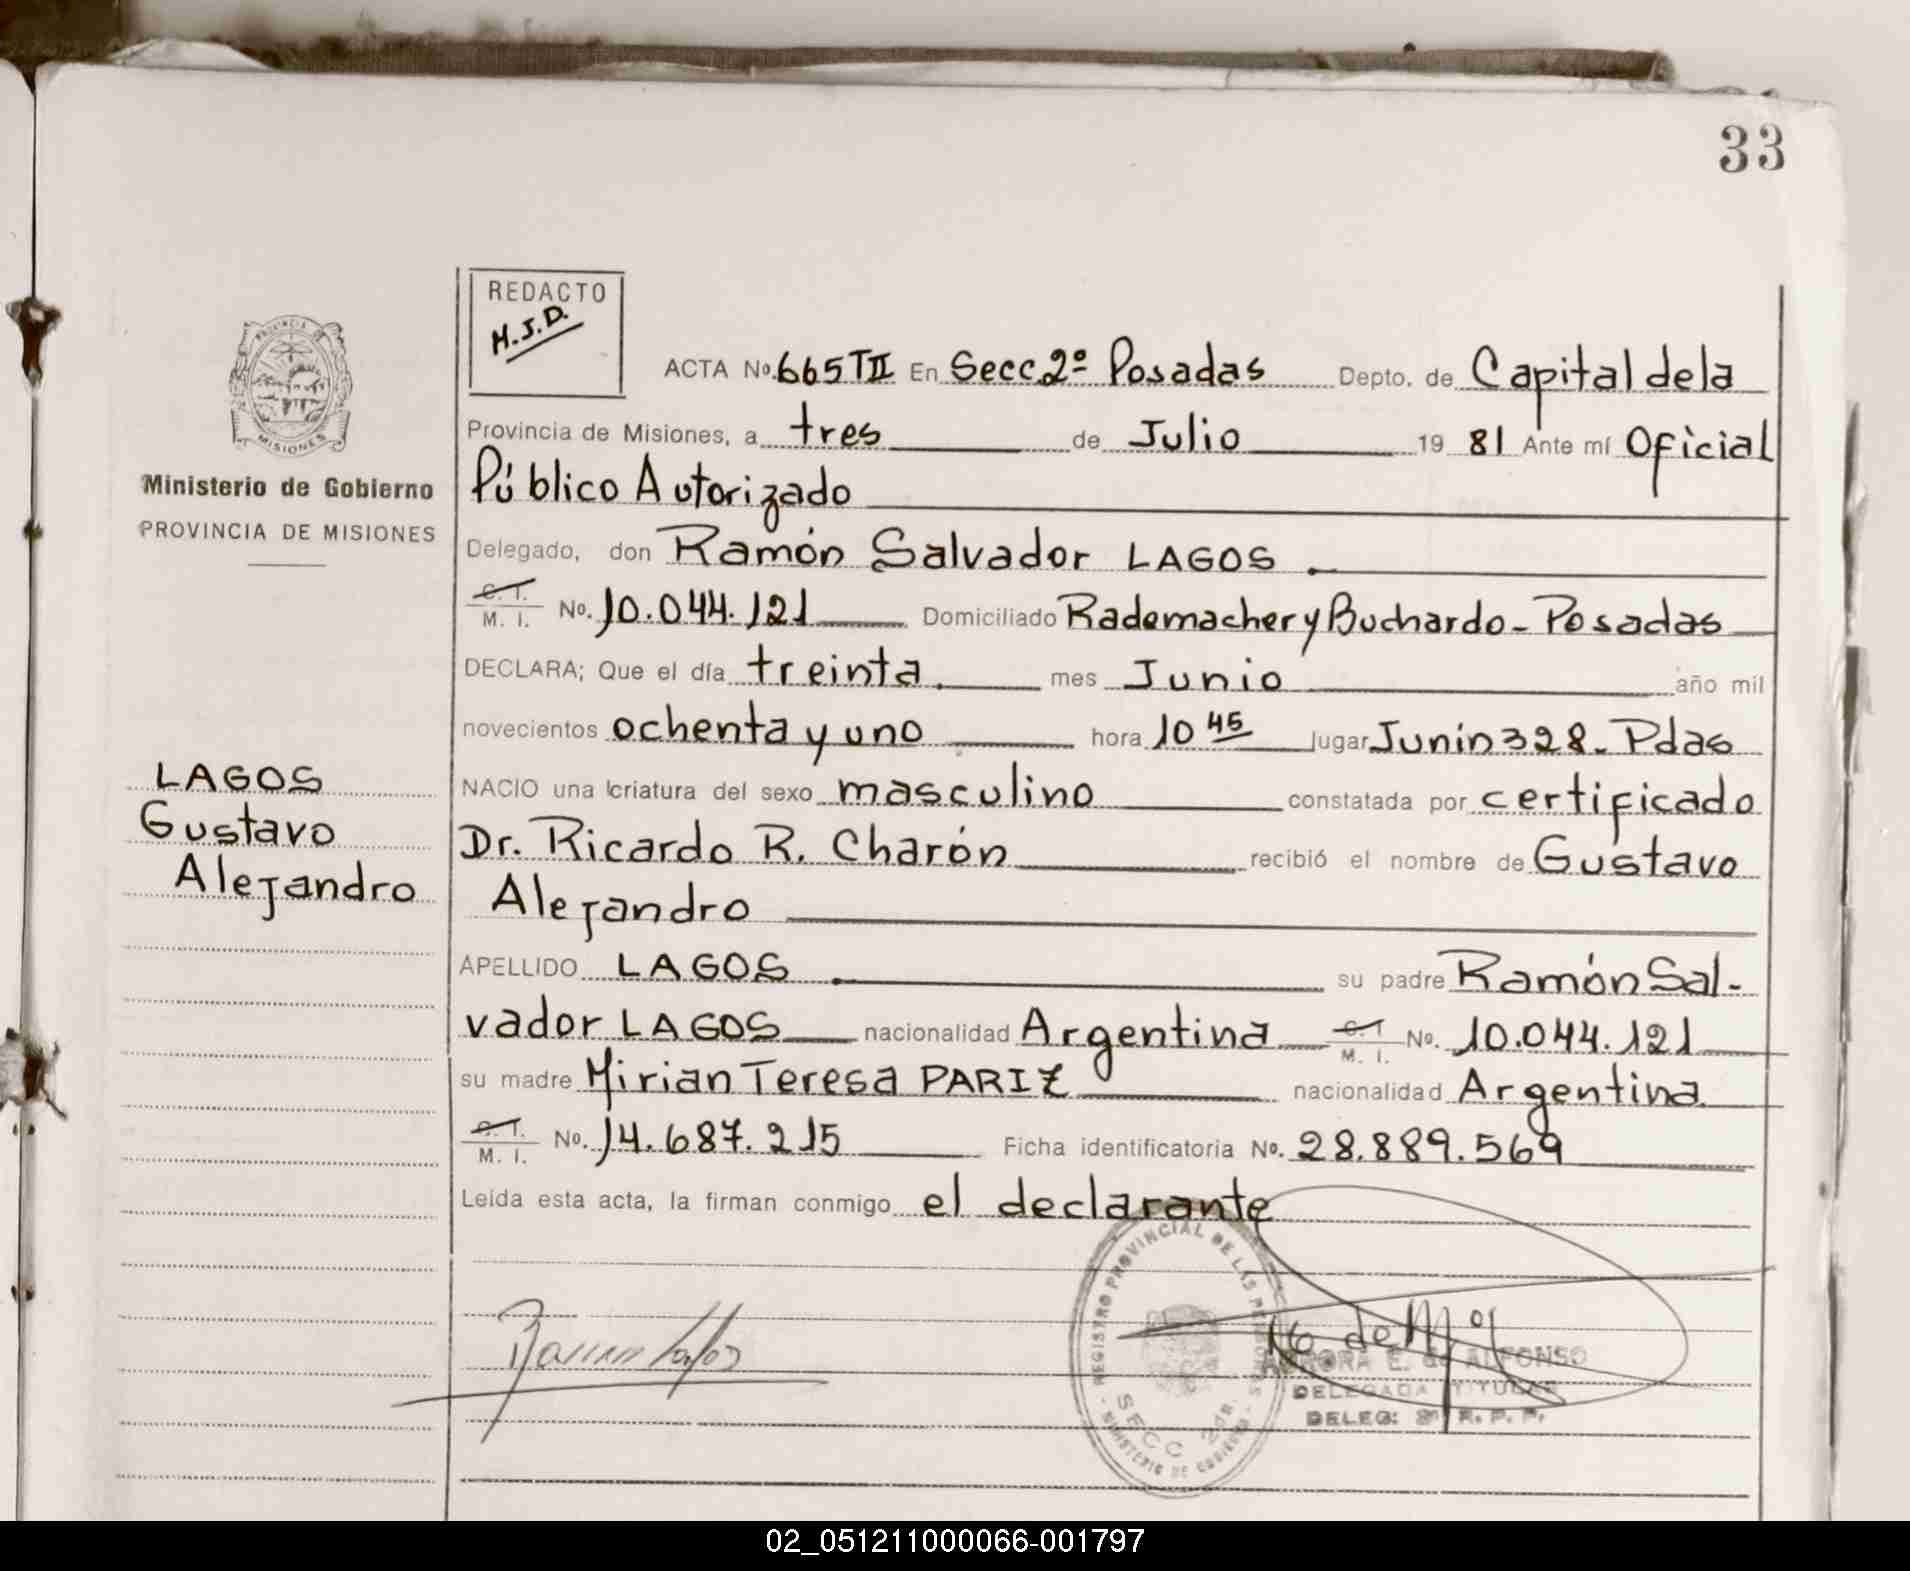 33
REDACTO
H.J.D.
ACTA No. 665 TII En Secc. 2º Posadas Depto. de Capital de la
Provincia de Misiones, a tres de Julio 19 81 Ante mí Oficial
Público Autorizado
Delegado, don Ramón Salvador LAGOS
C. I.
M. I. No. 10.044.121 Domiciliado Rademacher y Buchardo - Posadas
DECLARA; Que el día treinta mes Junio año mil
novecientos ochenta y uno hora 10 45 lugar Junin 328 - Pdas
NACIO una criatura del sexo masculino constatada por certificado
Dr. Ricardo R. Charón recibió el nombre de Gustavo
Alejandro
APELLIDO LAGOS su padre Ramón Sal-
vador LAGOS nacionalidad Argentina C. I.
M. I. No. 10.044.121
su madre Mirian Teresa PARIZ nacionalidad Argentina
C. I.
M. I. No. 14.687.215 Ficha identificatoria No. 28.889.569
Leída esta acta, la firman conmigo el declarante
PROVINCIA DE
MISIONES
Ministerio de Gobierno
PROVINCIA DE MISIONES
LAGOS
Gustavo
Alejandro
REGISTRO PROVINCIAL DE LAS PERSONAS
SECC 2da.
MINISTERIO DE GOBIERNO
E. de ALFONSO
DELEGADA TITULAR
DELEG: 2ª R. P. P.
02_051211000066-001797